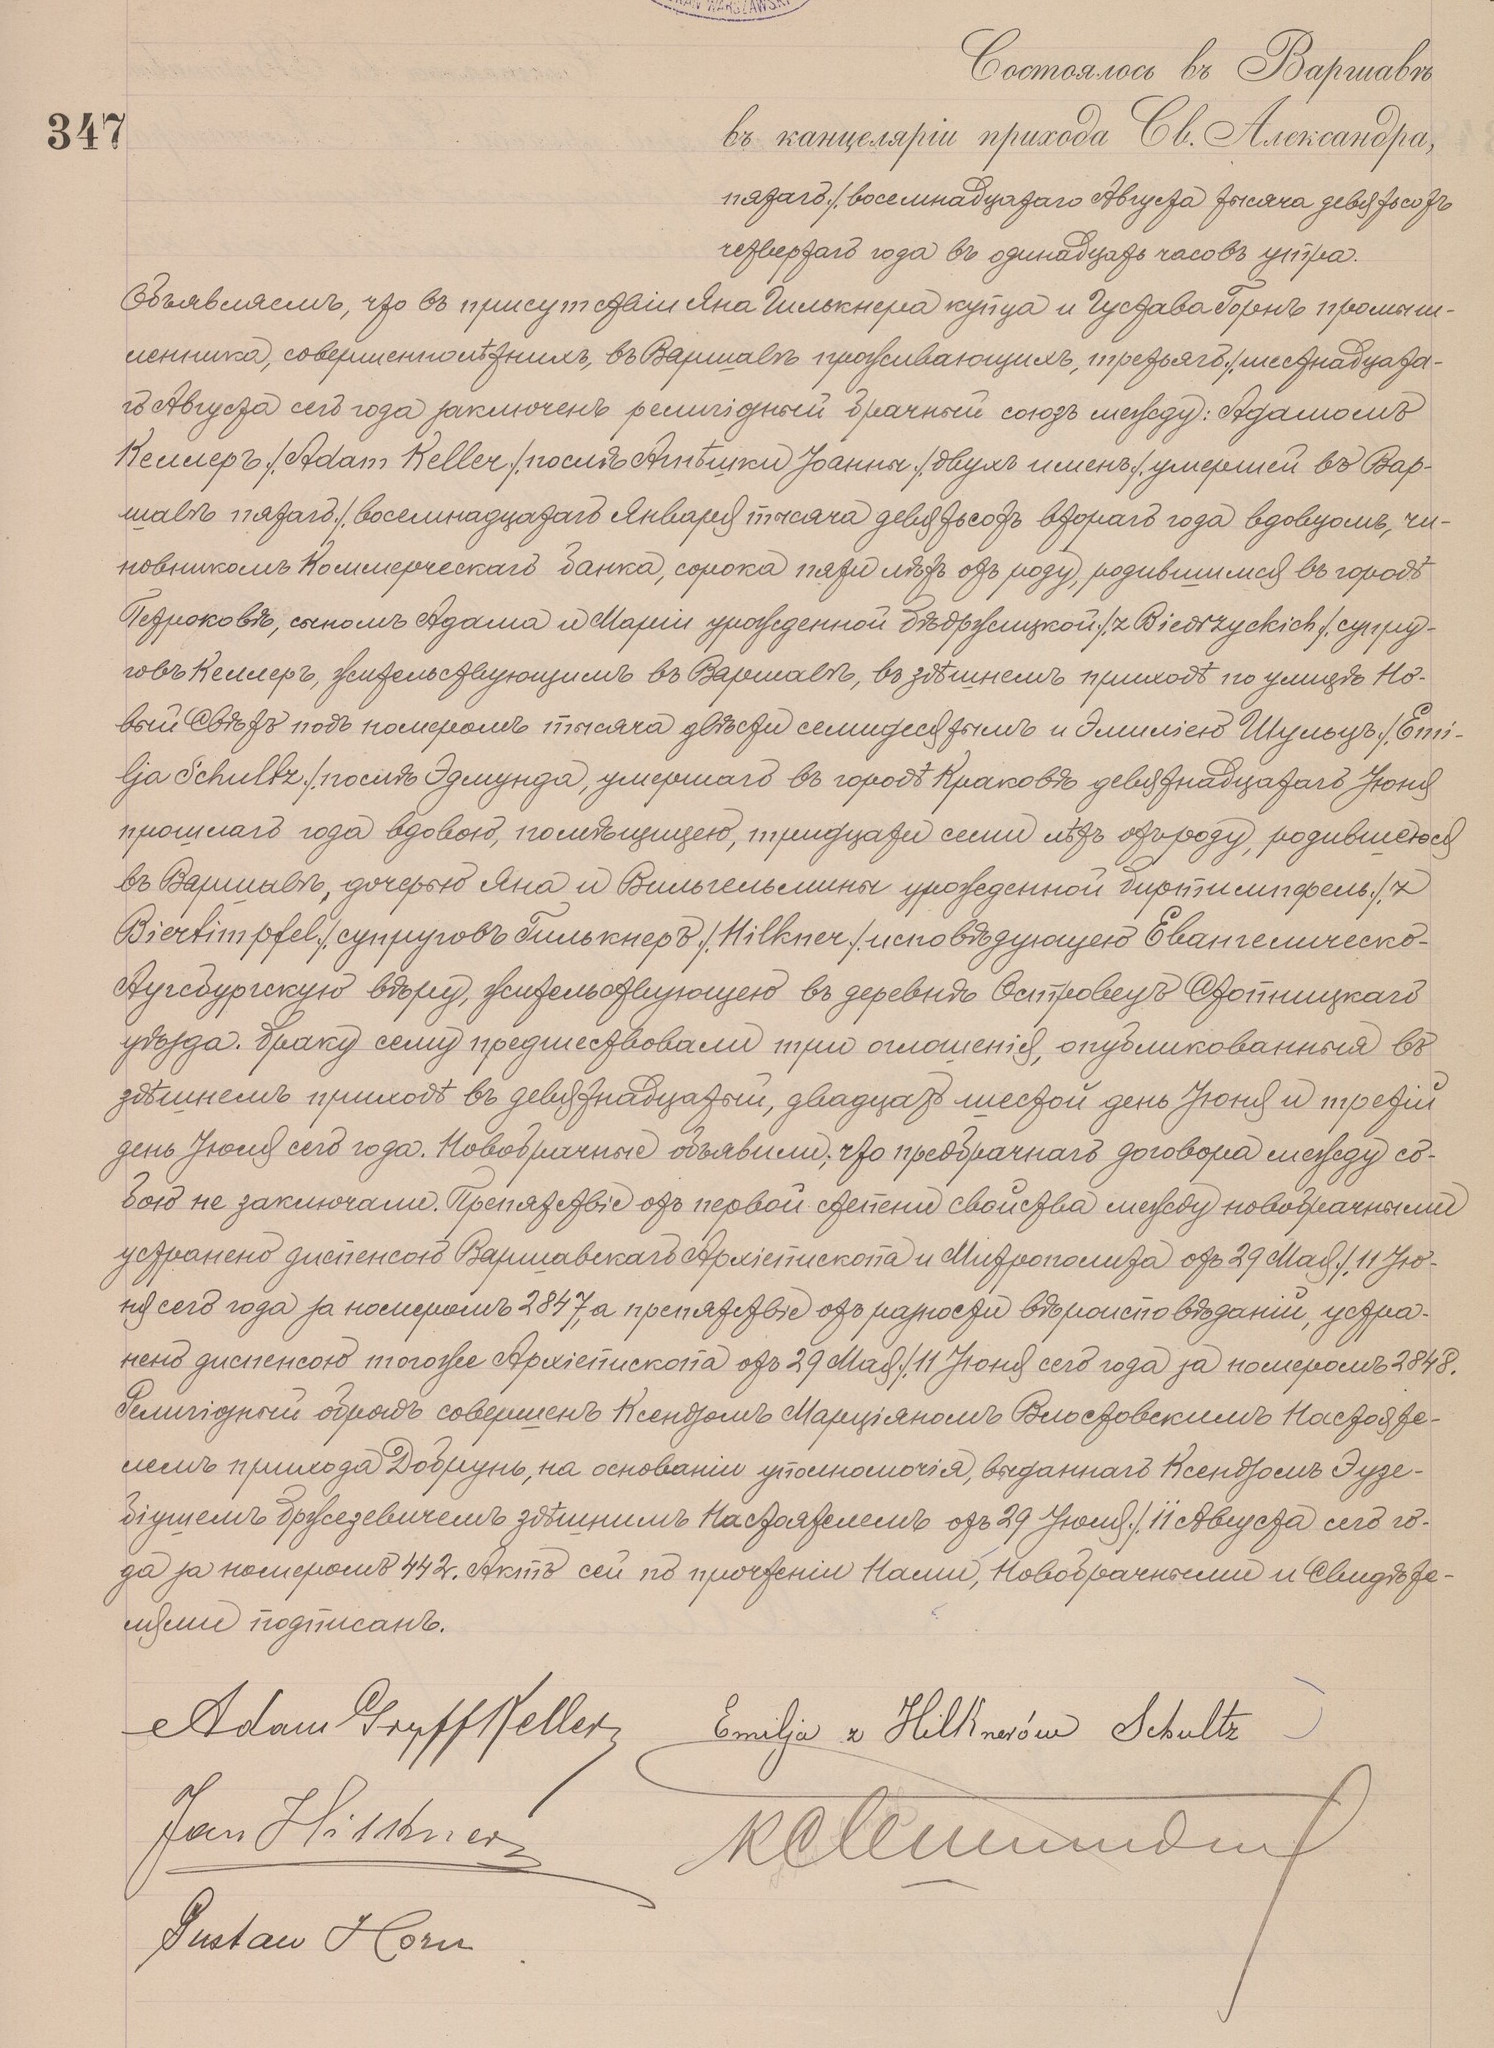 Состоялось въ Варшавѣ
347
въ канцеляріи прихода Св. Александра,
пятаго /. восемнадцатаго Августа тысяча девятьсотъ
четвертаго года въ одинадцать часовъ утра.
Объявляемъ, что въ присутствіи Яна Гилькнера купца и Густава Горнъ промыш-
ленника, совершеннолѣтнихъ, въ Варшавѣ проживающихъ, третьяго /. шестнадцата-
го Августа сего года заключенъ религіозный брачный союзъ между: Адамомъ
Келлеръ /. Adam Keller /. послѣ Анѣшки Іоанны /. двухъ именъ /. умершей въ Вар-
шавѣ пятаго /. восемнадцатаго Января тысяча девятьсотъ втораго года вдовцомъ, чи-
новникомъ Коммерческаго банка, сорока пяти лѣтъ отъ роду, родившимся въ городѣ
Петроковѣ, сыномъ Адама и Маріи урожденной Бѣдржицкой /. z Biedrzyckich /. супру-
говъ Келлеръ, жительствующимъ въ Варшавѣ, въ здѣшнемъ приходѣ по улицѣ Но-
вый Свѣтъ подъ номеромъ тысяча двѣсти семидесятымъ и Эмиліею Шульцъ /. Emi-
lja Schultz /. послѣ Эдмунда, умершаго въ городѣ Краковѣ девятнадцатаго Іюня
прошлаго года вдовою, помѣщицею, тридцати семи лѣтъ отъ роду, родившеюся
въ Варшавѣ, дочерью Яна и Вильгельмины урожденной Биртимпфель /. z
Biertimpfel /. супруговъ Гилькнеръ /. Hilkner /. исповѣдующею Евангелическо-
Аугсбургскую вѣру, жительствующею въ деревнѣ Островецъ Стопницкаго
уѣзда. Браку сему предшествовали три оглашенія, опубликованныя въ
здѣшнемъ приходѣ въ девятнадцатый, двадцать шестой день Іюня и третій
день Іюля сего года. Новобрачные объявили, что предбрачнаго договора между со-
бою не заключали. Препятствіе отъ первой степени свойства между новобрачными
устранено диспенсою Варшавскаго Архіепископа и Митрополита отъ 29 Мая /. 11 Ію-
ня сего года за номеромъ 2847, а препятствіе отъ разности вѣроисповѣданій, устра-
нено диспенсою тогоже Архіепископа отъ 29 Мая /. 11 Іюня сего года за номеромъ 2848.
Религіозный обрядъ совершенъ Ксендзомъ Марціяномъ Влостовскимъ Настояте-
лемъ прихода Добрунь, на основаніи уполномочія, выданнаго Ксендзомъ Эузе-
біушемъ Бржезевичемъ здѣшнимъ Настоятелемъ отъ 29 Іюля /. 11 Августа сего го-
да за номеромъ 442. Актъ сей по прочтеніи Нами, Новобрачными и Свидѣте-
лями подписанъ.
Adam Gryff Keller Emilja z Hilknerów Schultz
Jan Hilkner
Gustaw Horn